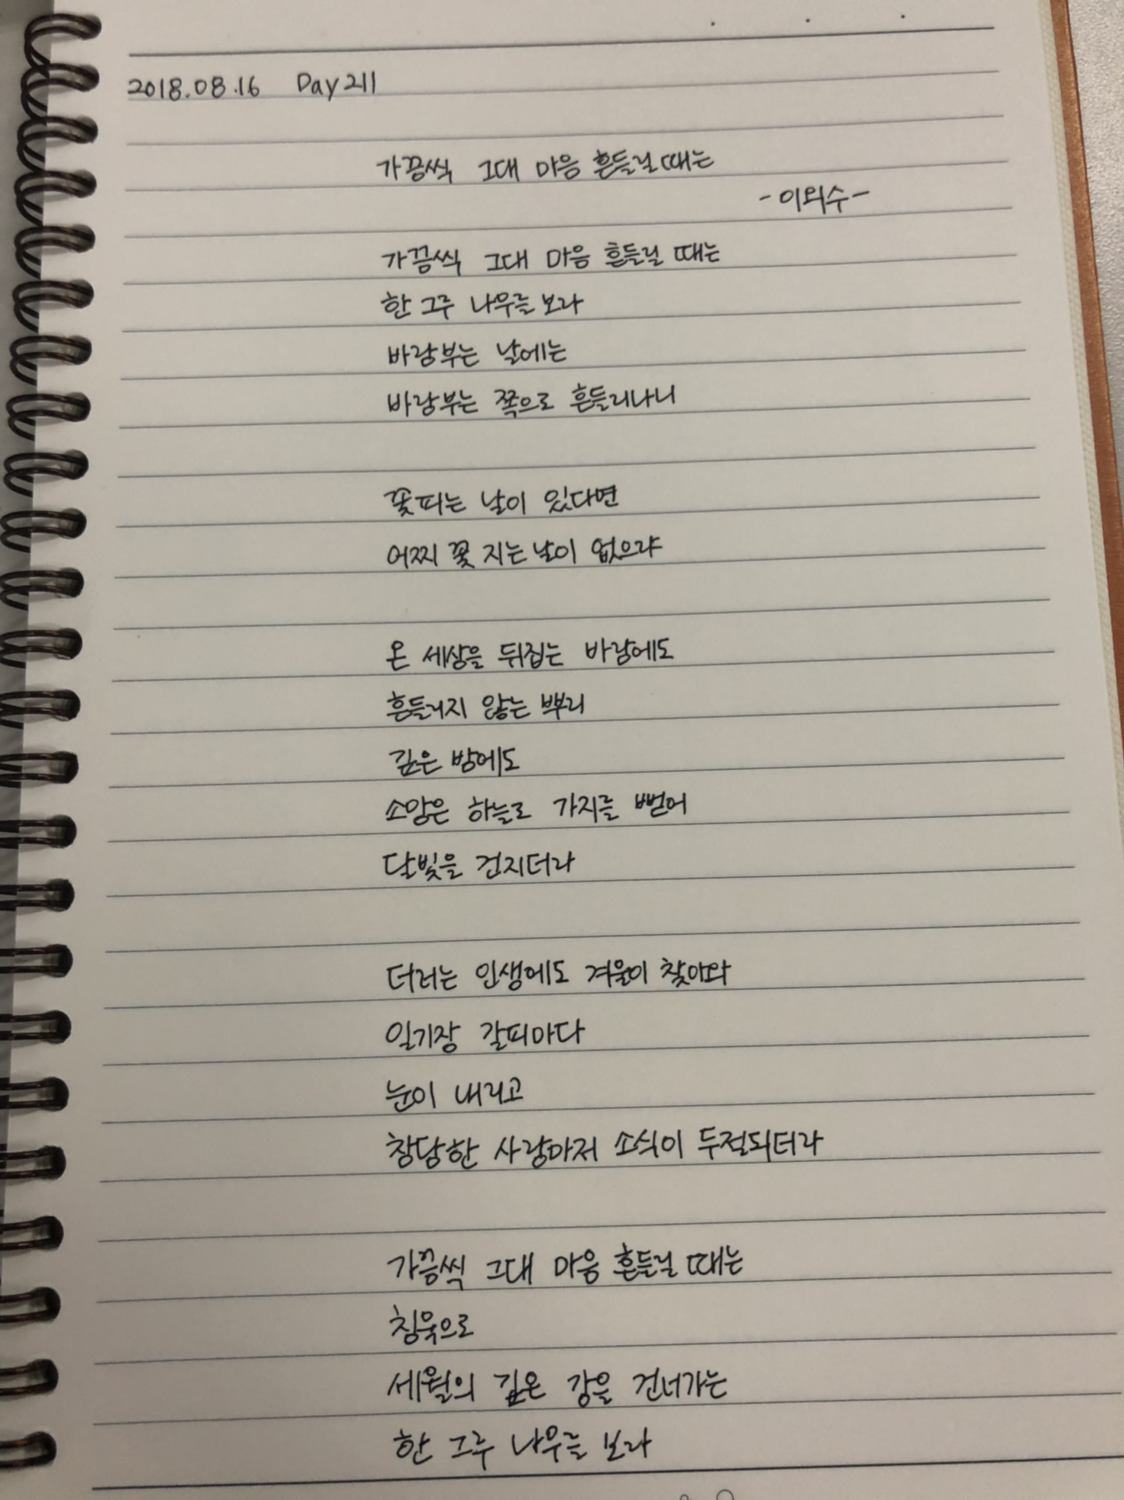 2018.08.16 Day 211
가끔씩 그대 마음 흔들릴 때는
-이외수-
가끔씩 그대 마음 흔들릴 때는
한 그루 나무를 보라
바람부는 날에는
바람부는 쪽으로 흔들리나니
꽃피는 날이 있다면
어찌 꽃 지는 날이 없으랴
온 세상을 뒤집는 바람에도
흔들리지 않는 뿌리
깊은 밤에도
소망은 하늘로 가지를 뻗어
달빛을 건지더라
더러는 인생에도 겨울이 찾아와
일기장 갈피마다
눈이 내리고
참담한 사랑마저 소식이 두절되더라
가끔씩 그대 마음 흔들릴 때는
침묵으로
세월의 깊은 강을 건너가는
한 그루 나무를 보라